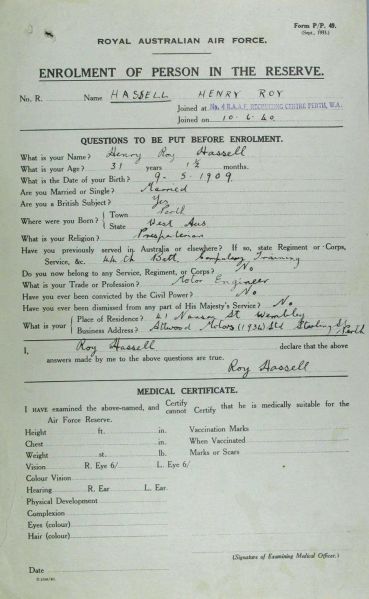 Form P/P. 49.
(Sept., 1933.)
ROYAL AUSTRALIAN AIR FORCE.
ENROLMENT OF PERSON IN THE RESERVE.
No. R. Name HASSELL HENRY ROY
Joined at No. 4 R.A.A.F. RECRUITING CENTRE PERTH, W.A.
Joined on 10.6.40
QUESTIONS TO BE PUT BEFORE ENROLMENT.
What is your Name? Henry Roy Hassell
What is your Age? 31 years 1½ months.
What is the Date of your Birth? 9-5-1909
Are you Married or Single? Married
Are you a British Subject? Yes
Where were you Born? { Town Perth
State West Aus
What is your Religion? Presbyterian
Have you previously served in Australia or elsewhere? If so, state Regiment or Corps,
Service, &c. 44 Ch Batt. Compulsory Training
Do you now belong to any Service, Regiment, or Corps? No
What is your Trade or Profession? Motor Engineer
Have you ever been convicted by the Civil Power? No
Have you ever been dismissed from any part of His Majesty's Service? No
What is your { Place of Residence? 41 Nanson St Wembley
Business Address? Attwood Motors (1934) Ltd Stirling St Perth
I, Roy Hassell declare that the above
answers made by me to the above questions are true.
Roy Hassell
MEDICAL CERTIFICATE.
I HAVE examined the above-named, and Certify
cannot Certify that he is medically suitable for the
Air Force Reserve.
Height ft. in. Vaccination Marks
Chest in. When Vaccinated
Weight st. lb. Marks or Scars
Vision R. Eye 6/ L. Eye 6/
Colour Vision
Hearing R. Ear L. Ear
Physical Development
Complexion
Eyes (colour)
Hair (colour)
(Signature of Examining Medical Officer.)
Date